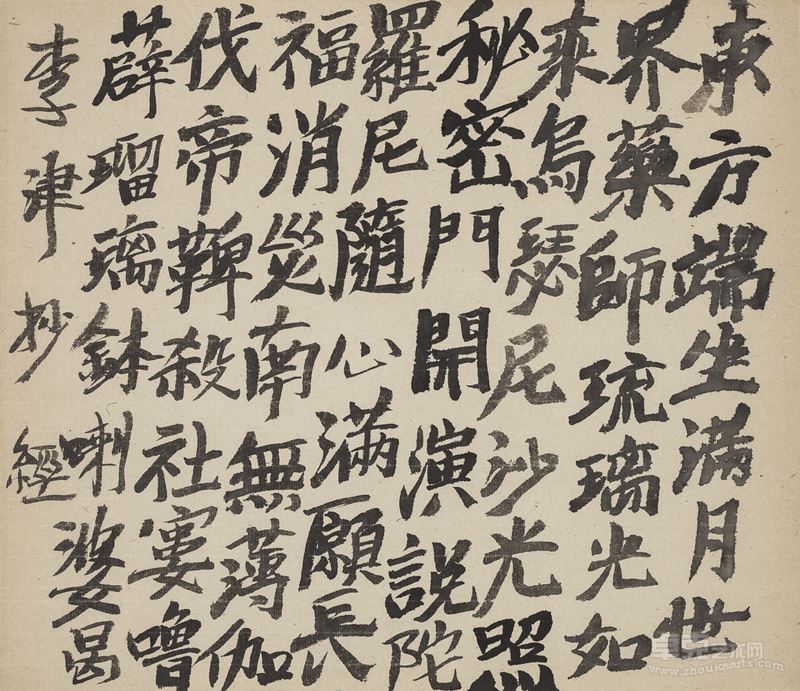 東方端坐滿月世
界藥師琉璃光如
來烏瑟尼沙光昭
秘密門開演說陀
羅尼隨心滿願長
福消災南無薄伽
伐帝鞞殺社窶嚕
薜瑠璃鉢喇婆曷
李津抄經
卓克艺术网
www.zhoukearts.com